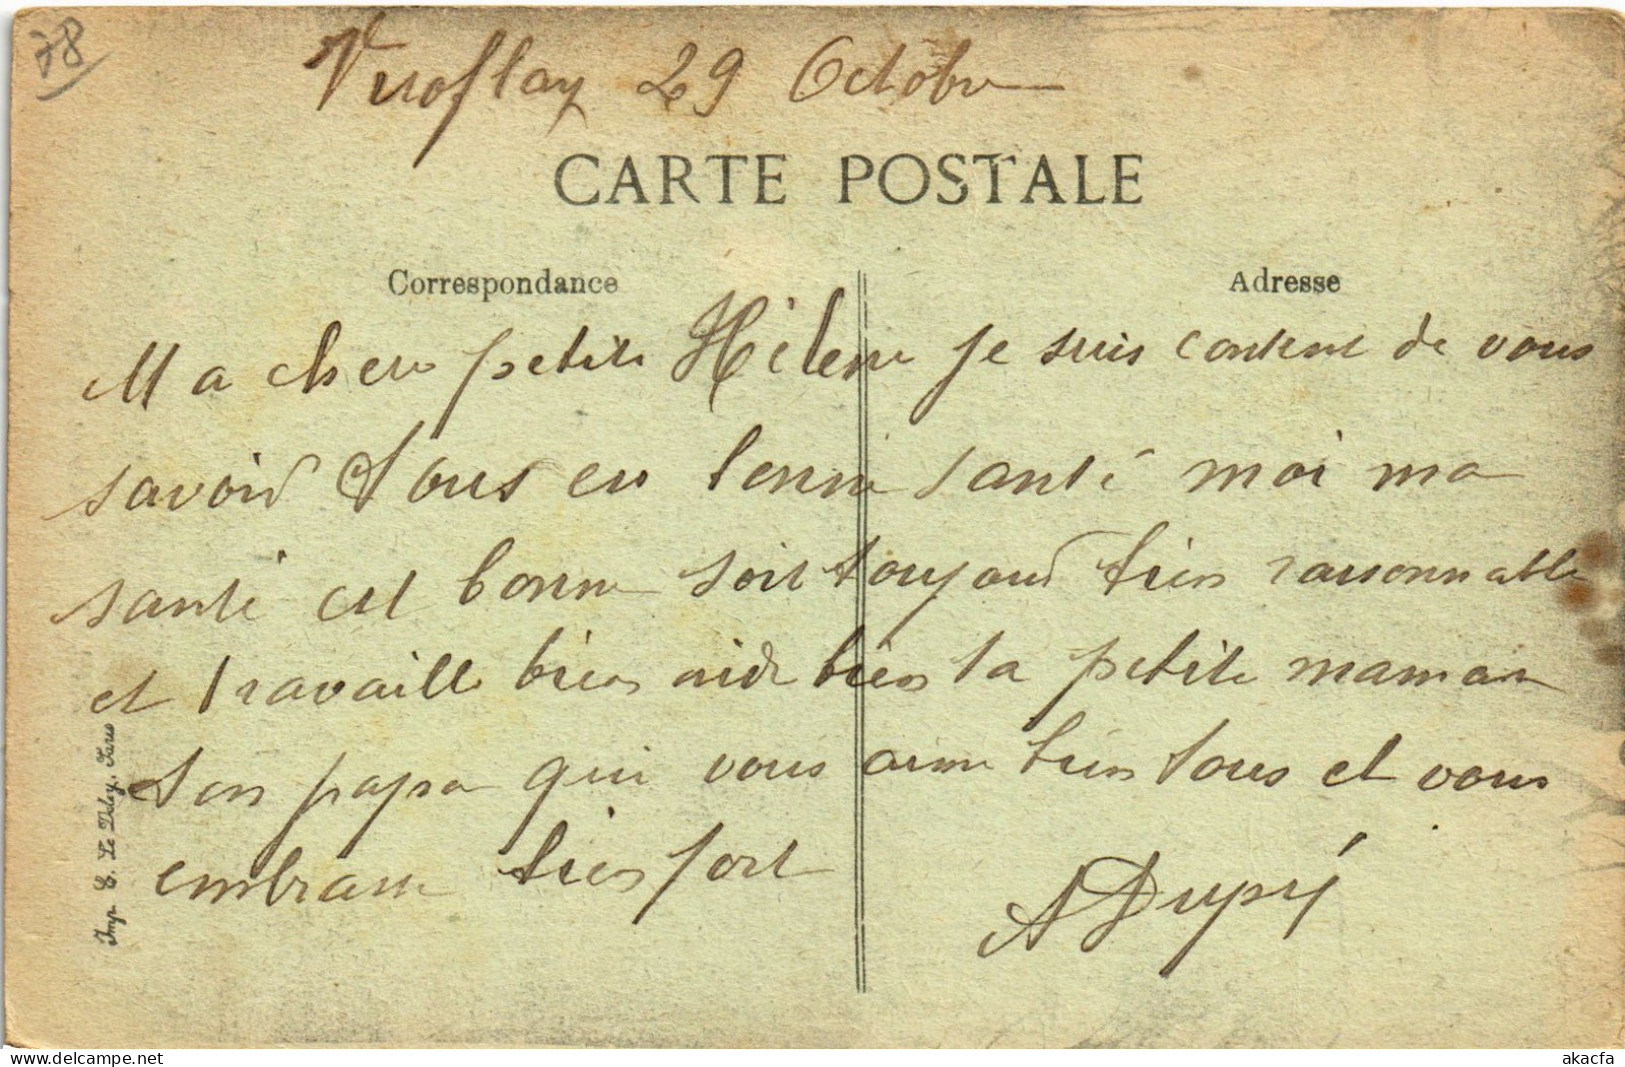 78
Viroflay 29 Octobre
CARTE POSTALE
Correspondance
Adresse
Ma chere petite Hélène je suis content de vous
savoir tous en bonne santé moi ma
santé est bonne soit toujour bien raisonnable
et travaille bien aide bien ta petite maman
ton papa qui vous aime bien tous et vous
embrasse bien fort
A Dupré
Imp. E. Le Deley, Paris
delcampe.net
akacfa